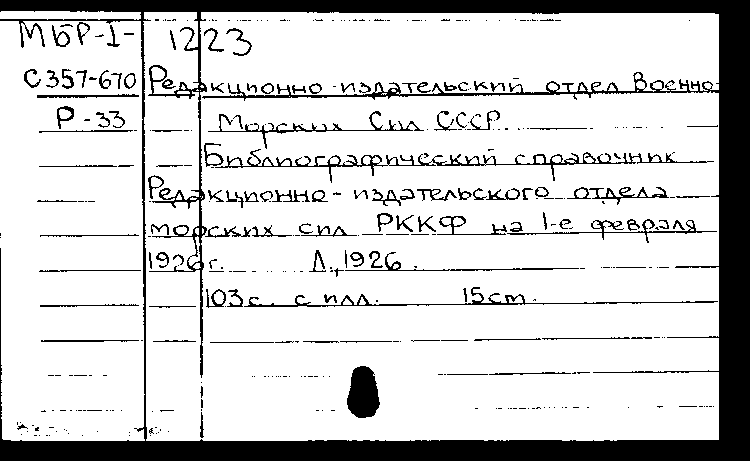 МБР-I- 1223
С357-670 Редакционно-издательский отдел Военно-
Р-33 Морских Сил СССР.
Библиографический справочник
Редакционно-издательского отдела
морских сил РККФ на 1-е февраля
1926г. Л.,1926.
103с. с илл. 15ст.